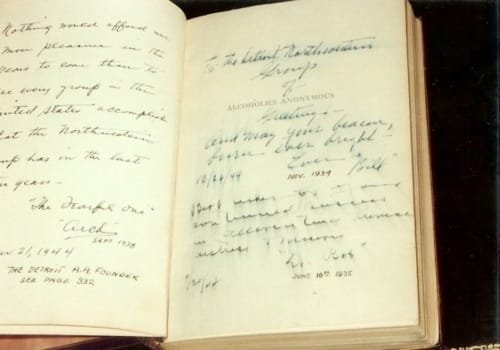 Nothing would afford me
more pleasure in the
years to come than to
see every group in the
United States accomplish
what the Northwestern
group has in the last
ten years —
"The Fearful One"
"Arch"
SEPT 1938
21, 1944
THE DETROIT A.A. FOUNDER
SEE PAGE 332
To the Detroit Northwestern
Group
of
ALCOHOLICS ANONYMOUS
Greetings —
and may your beacon,
burn ever bright —
Ever "Bill"
10/26/44 NOV. 1934
Best wishes for
continued success
in
"Dr. Bob"
JUNE 10TH 1935